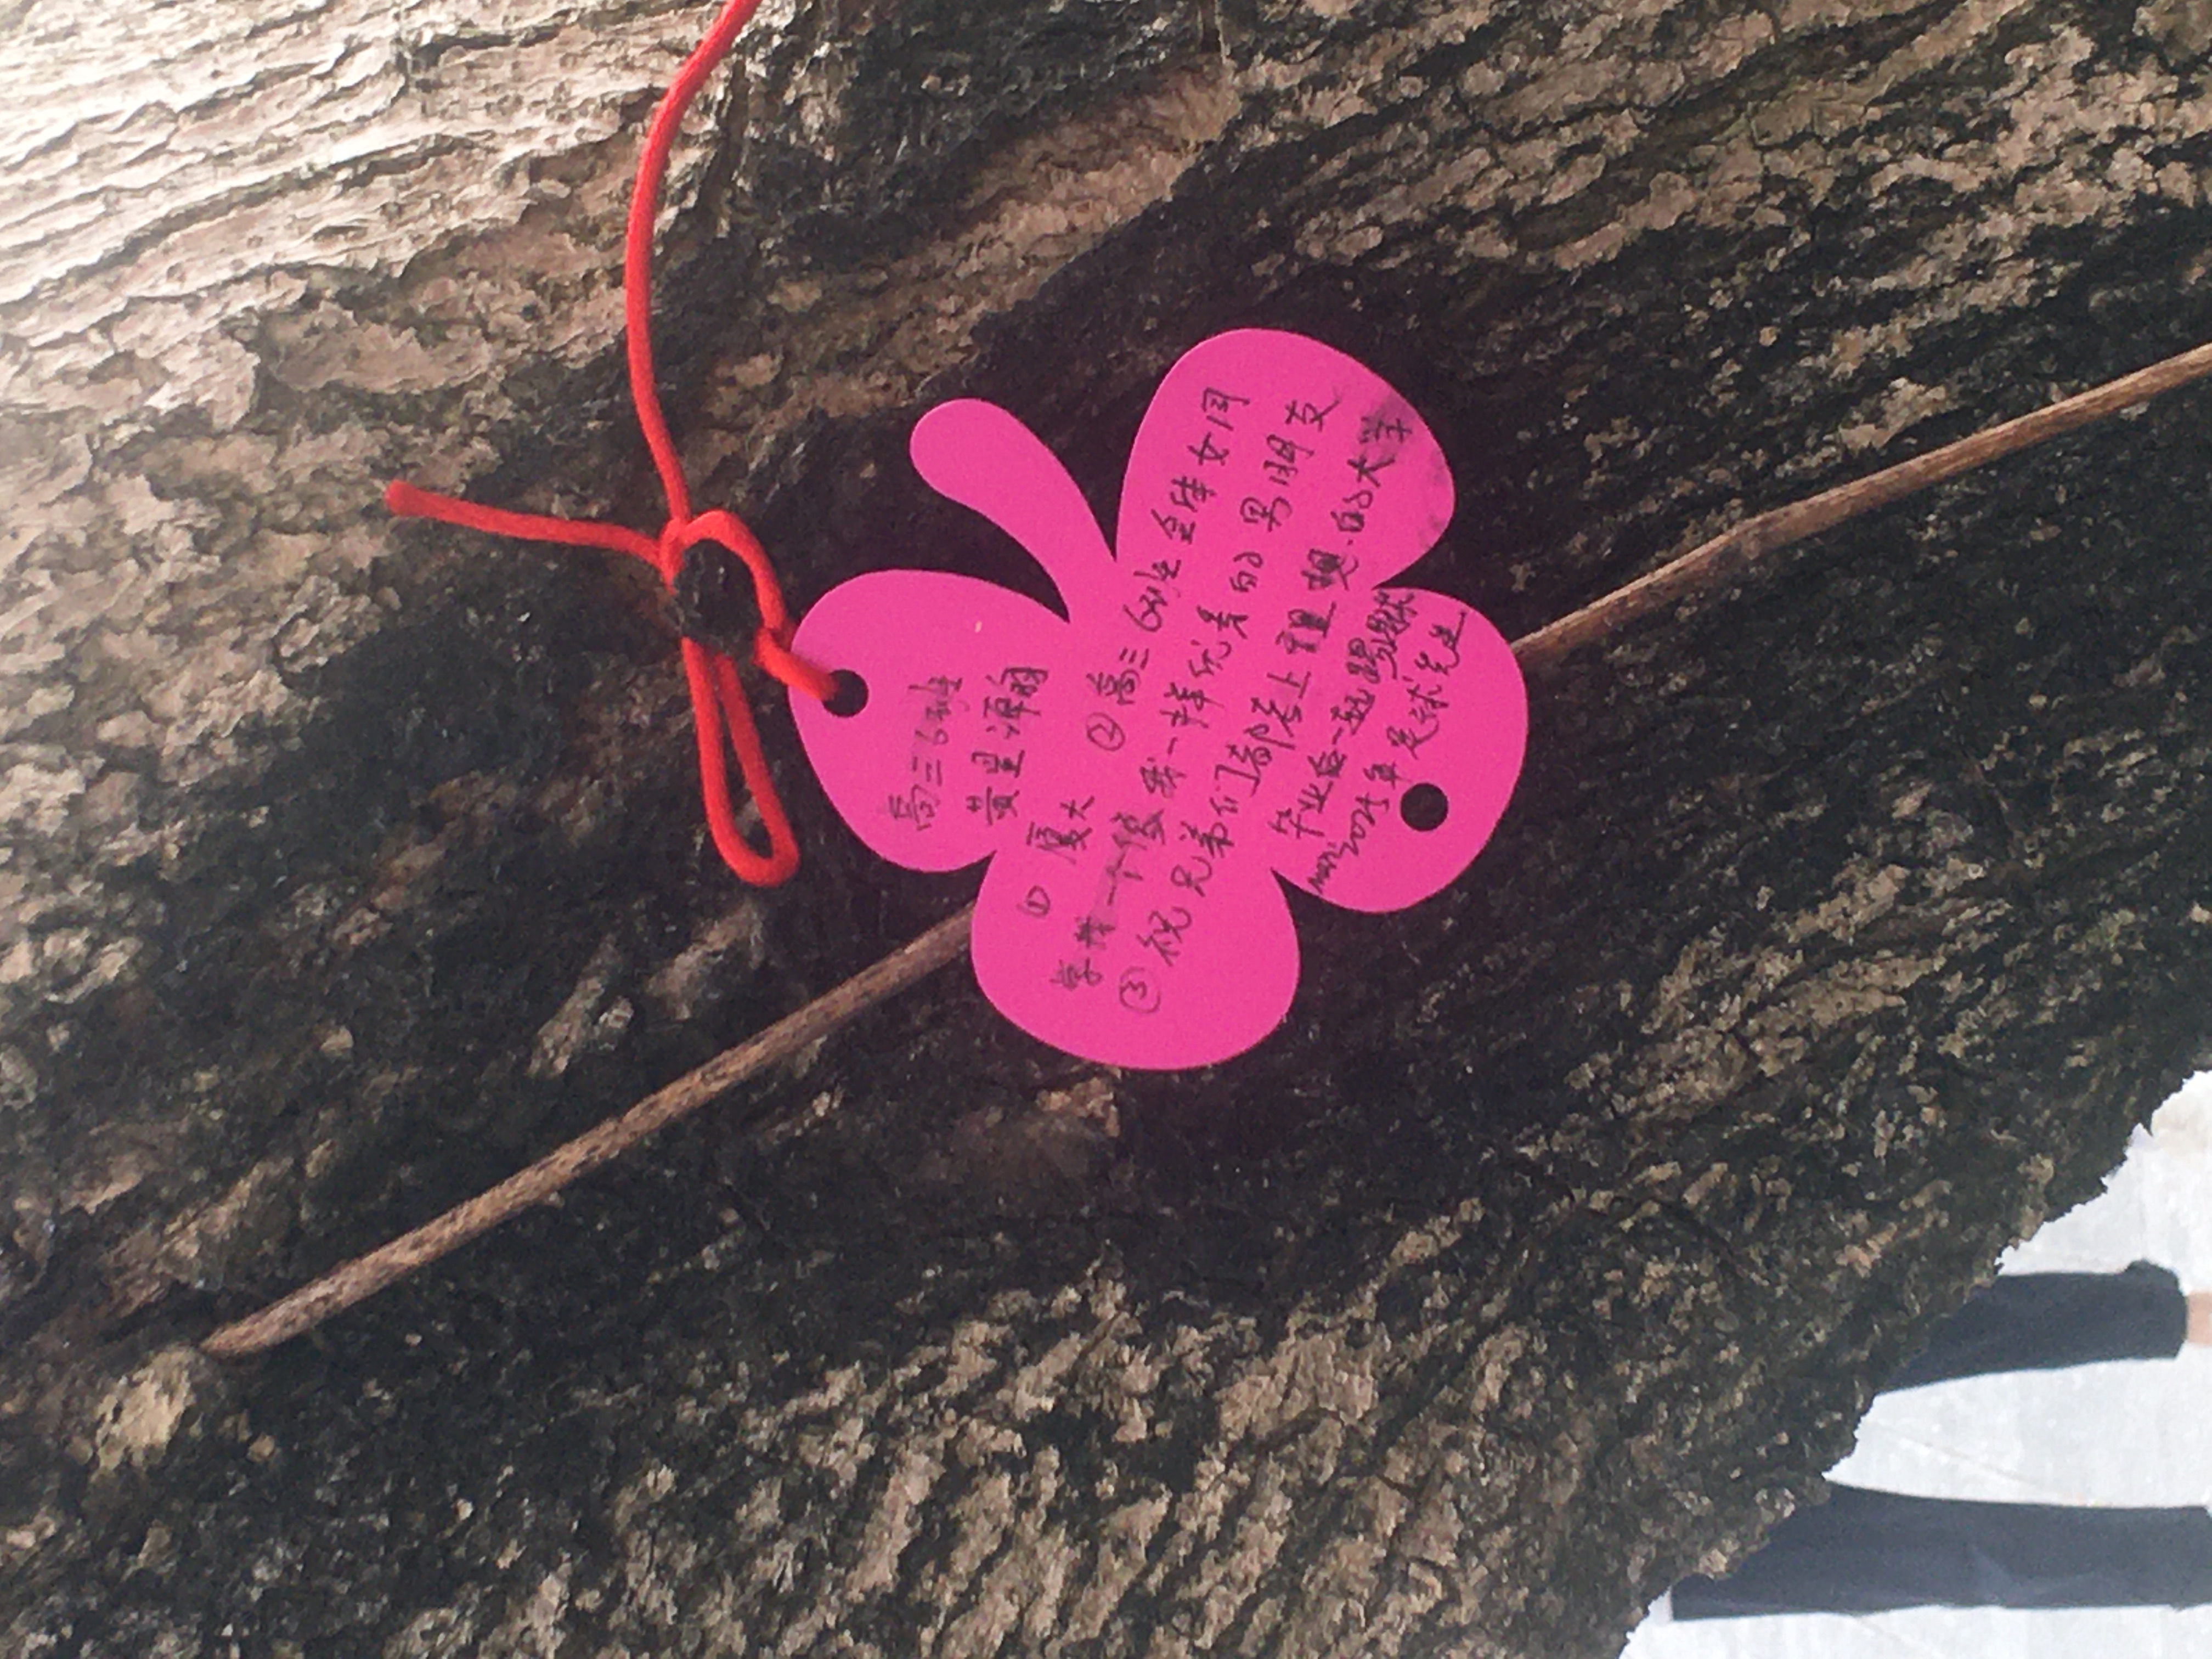 高三6班
黄星源翔
① 厦大
② 高三6班全体女同
学找一个像我一样优秀的男朋友
③ 祝兄弟们都考上理想的大学
毕业后一起踢球
2025年 足球先生